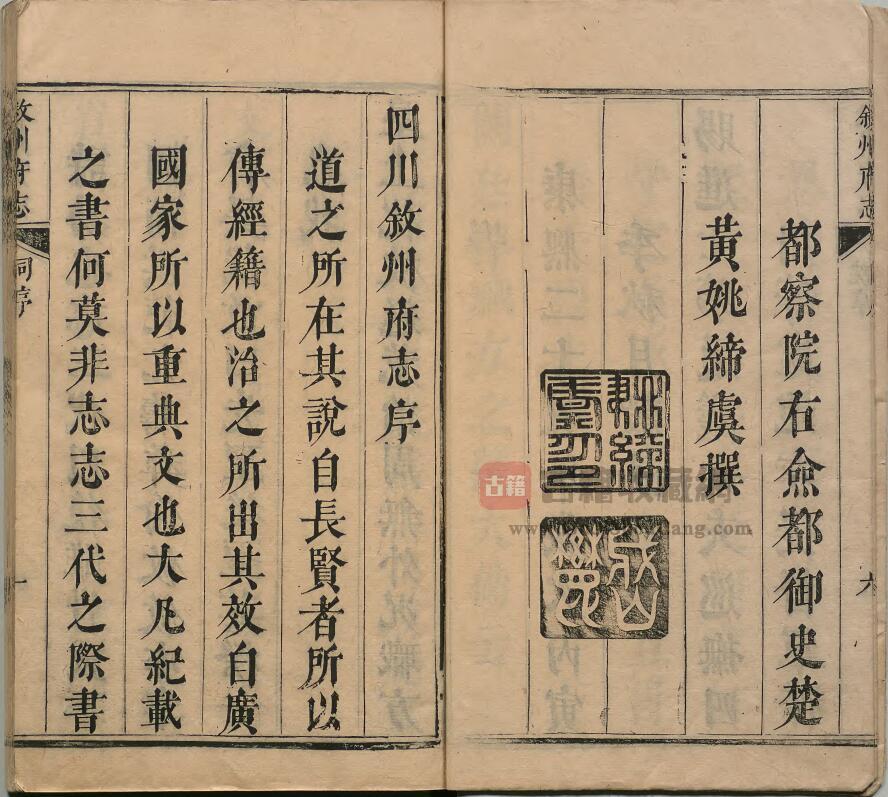 都察院右僉都御史楚
黃姚締虞撰
六
四川敘州府志序
道之所在其說自長賢者所以
傳經籍也治之所出其效自廣
國家所以重典文也大凡紀載
之書何莫非志志三代之際書
敘州府志
序
一
古籍
www.
ang.com